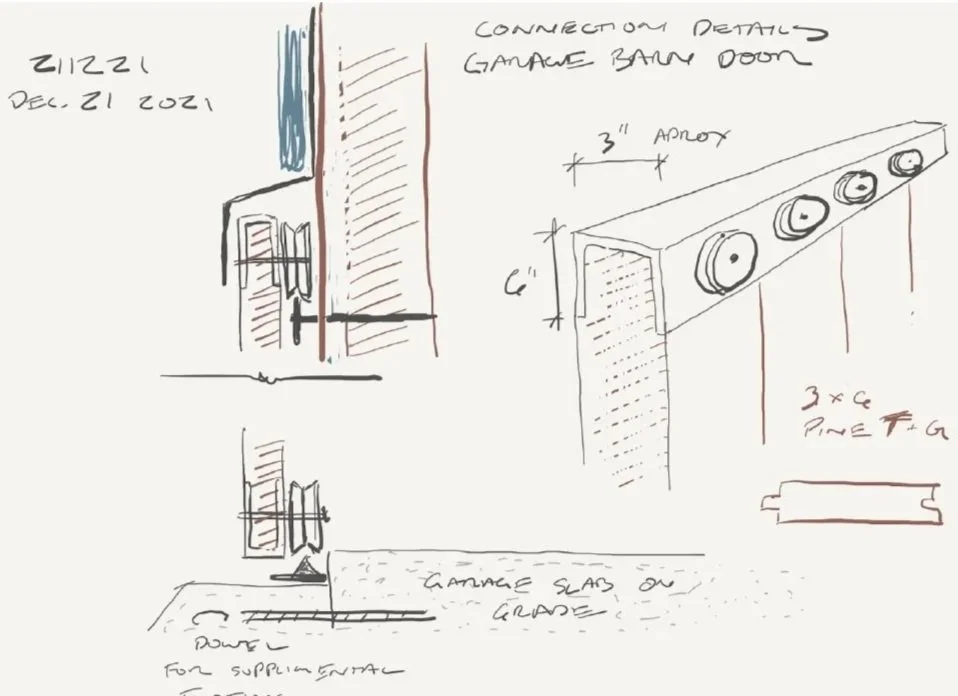 CONNECTION DETAILS
GARAGE BARN DOOR
211221
DEC. 21 2021
3" APROX
6"
3 x 6
PINE T+G
GARAGE SLAB ON
GRADE
DOWEL
FOR SUPPLIMENTAL